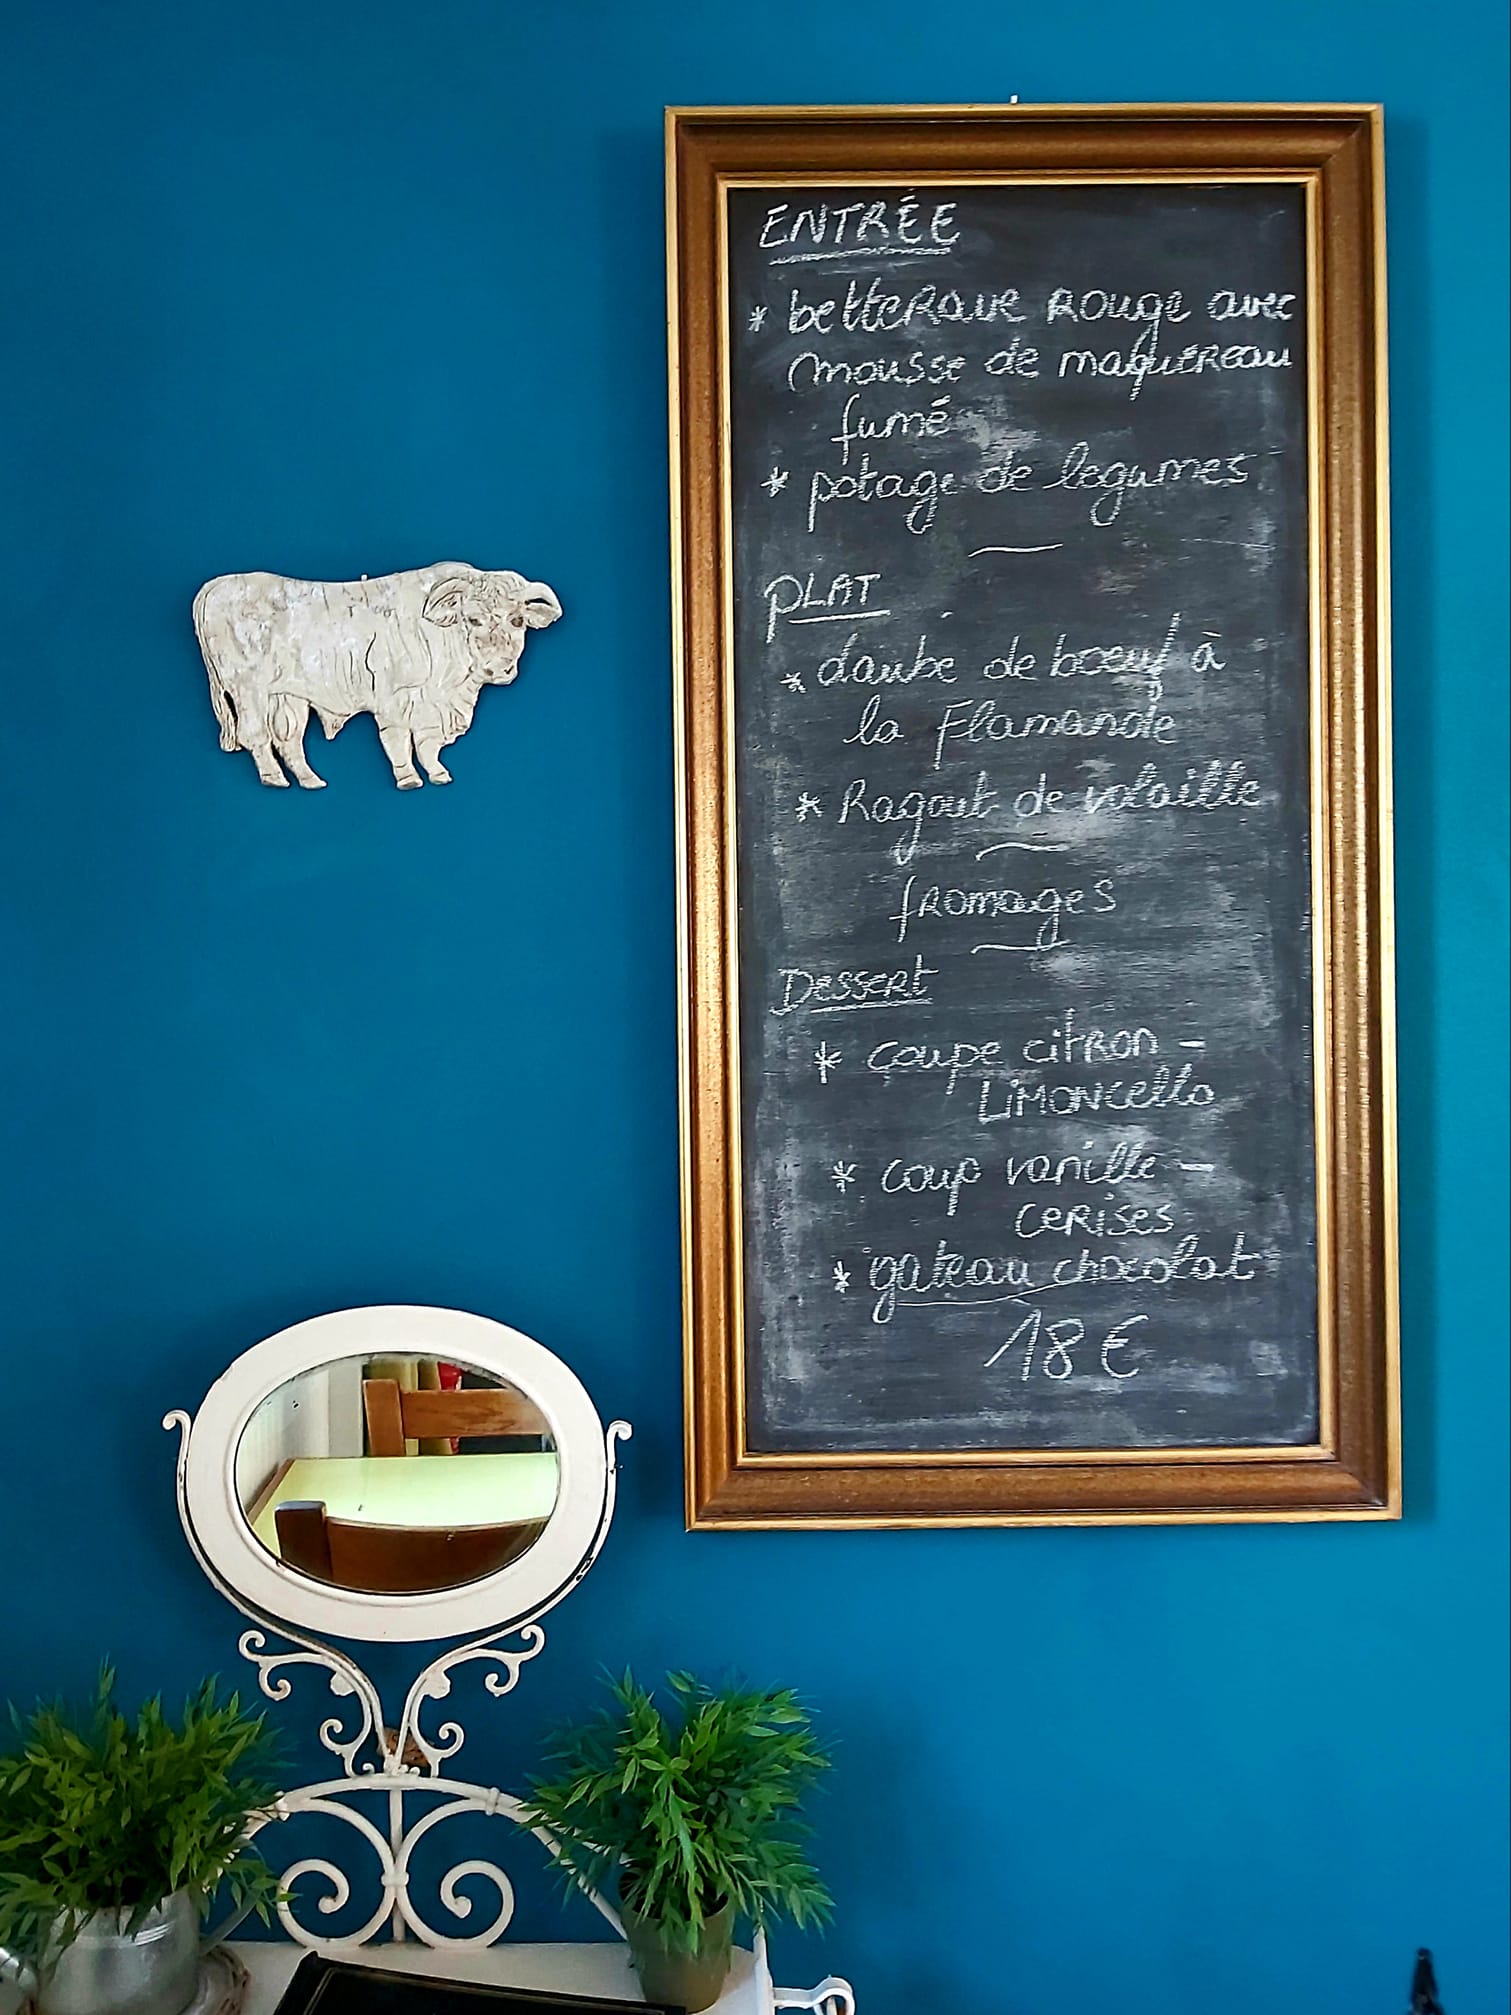 ENTRÉE
* betterave rouge avec
mousse de maquereau
fumé
* potage de legumes
PLAT
* daube de boeuf à
la Flamande
* Ragout de volaille
fromages
Dessert
* coupe citron -
Limoncello
* coup vanille -
cerises
* gateau chocolat
18 €